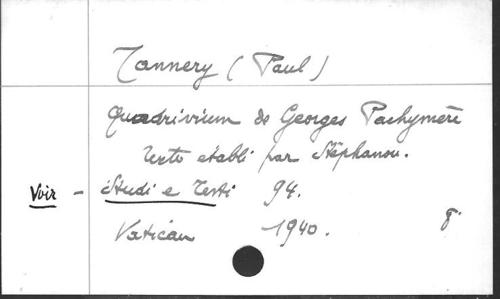 Tannery (Paul)
Quadrivium de Georges Pachymère
texte établi par Stéphanou.
Voir - Studi e Testi 94.
Vatican 1940. 8°